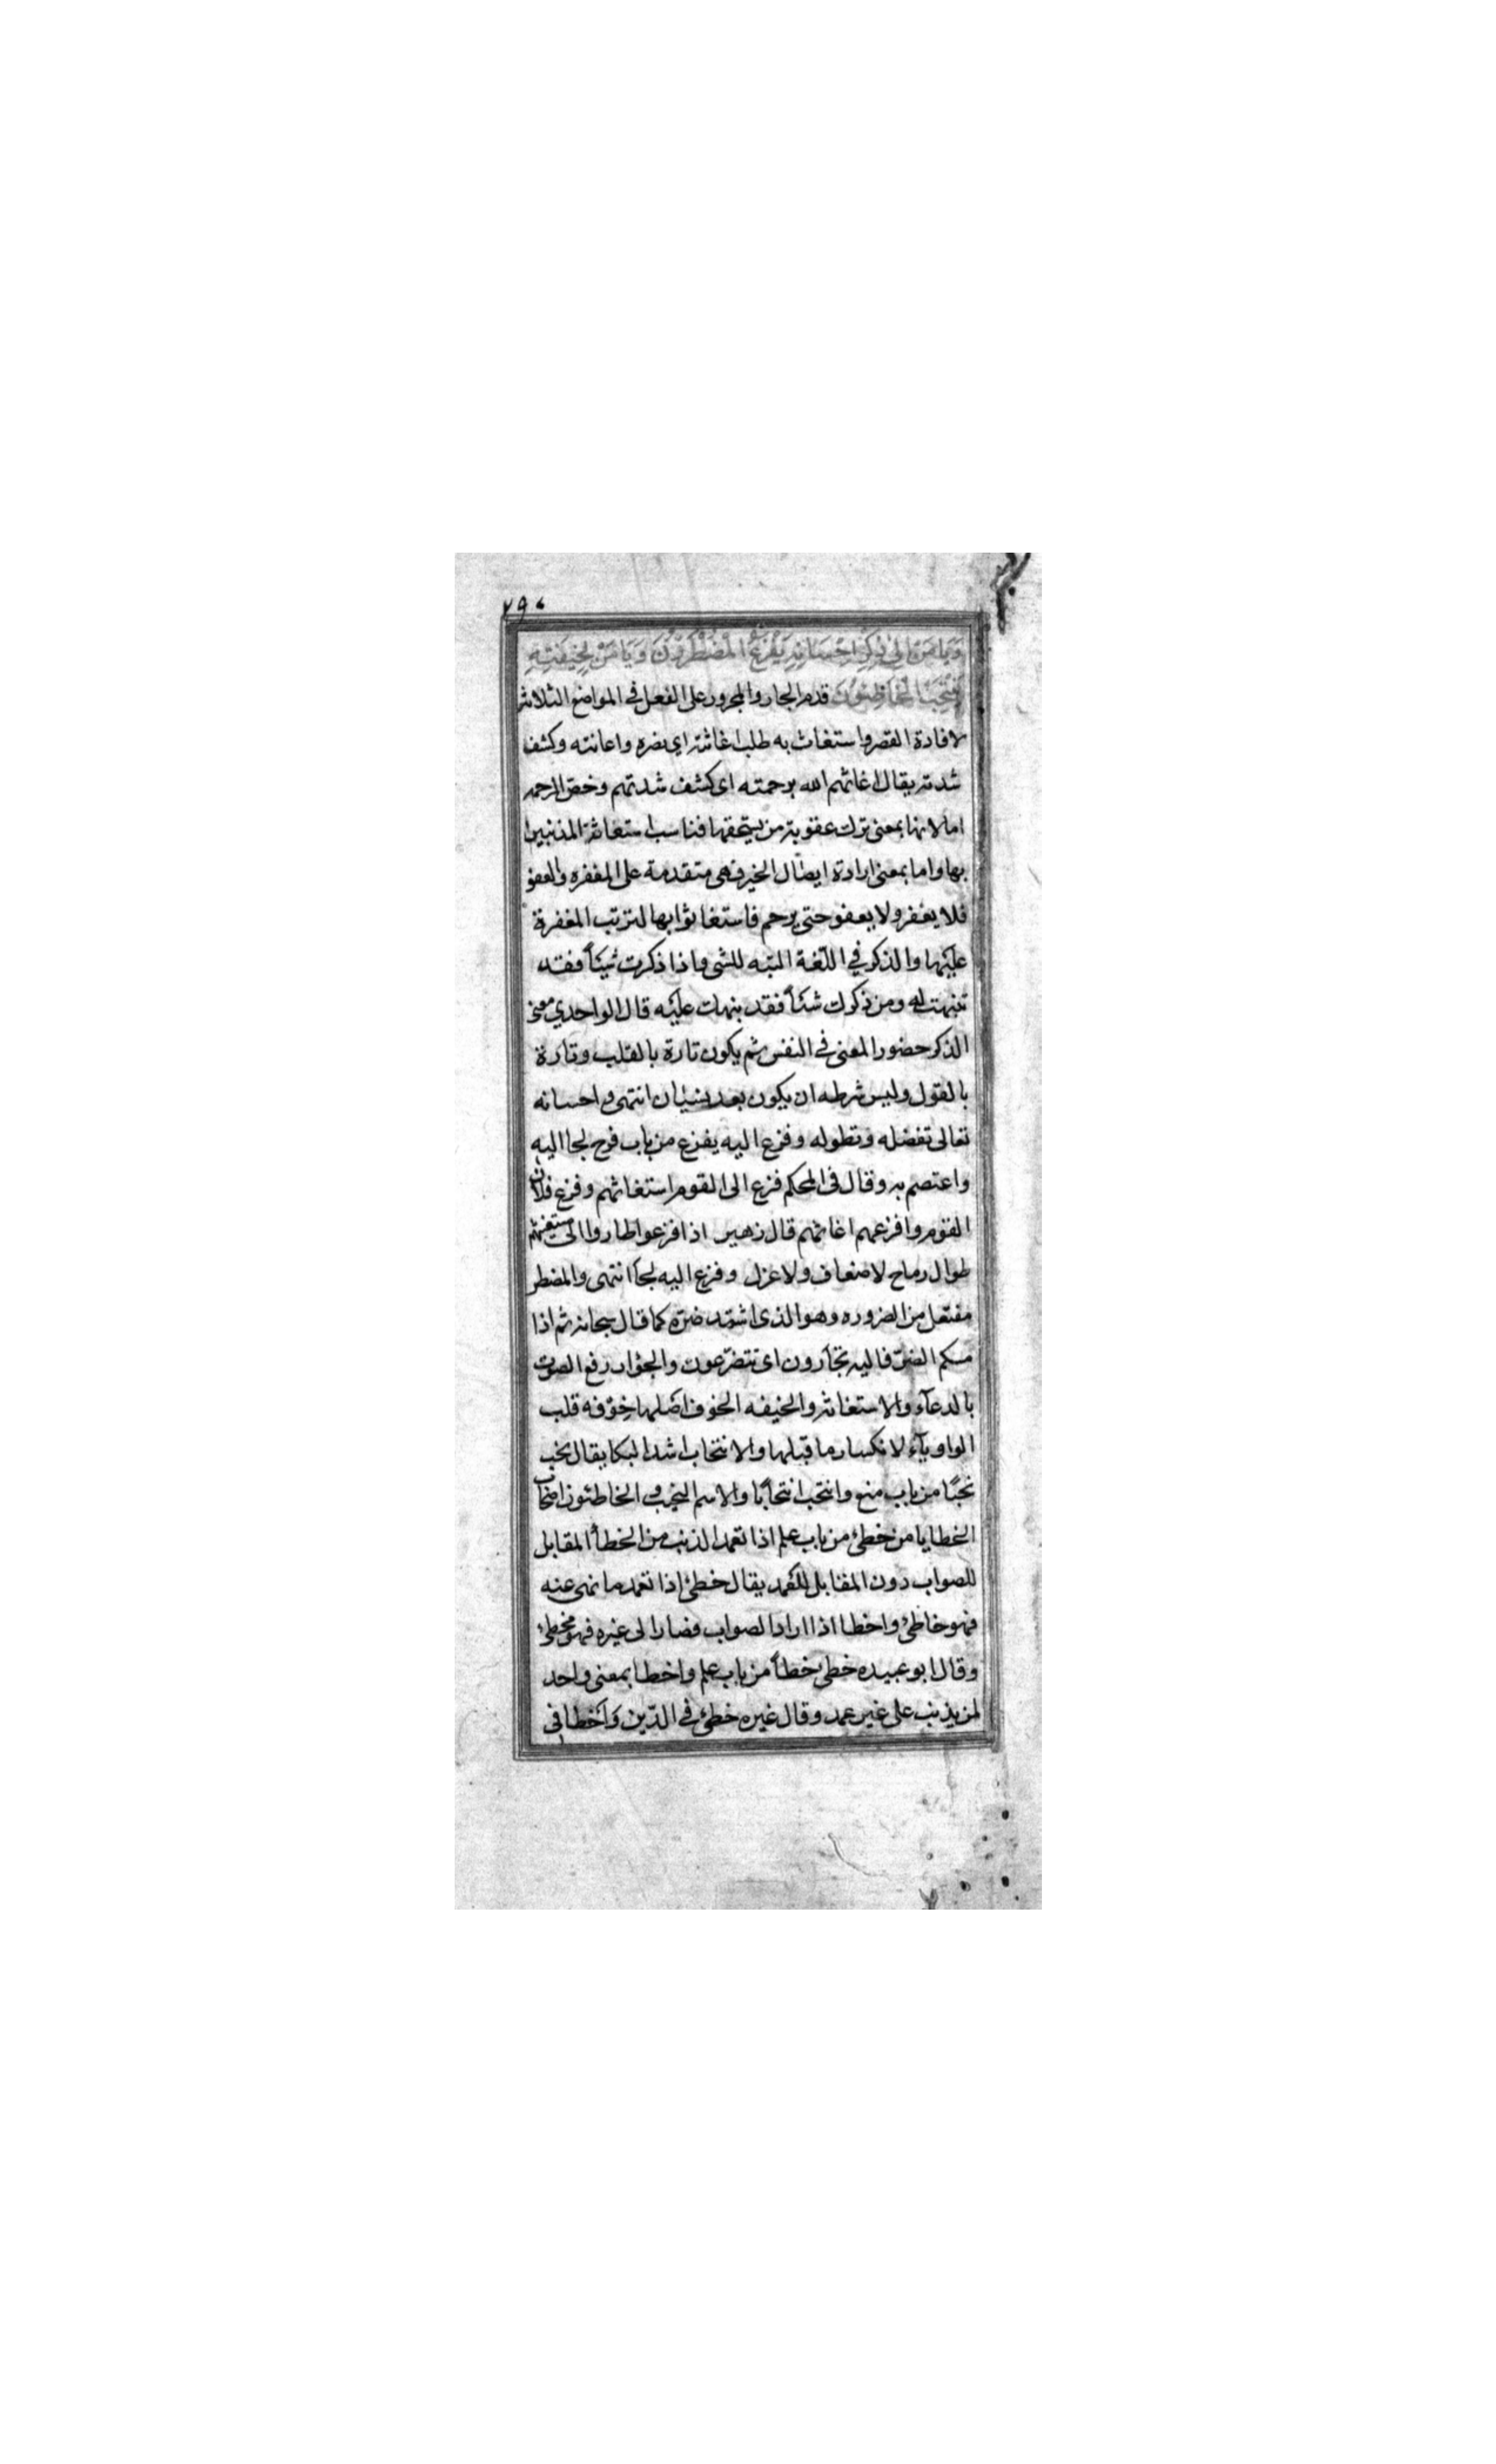 ٧٩٠
وَيَا مَنْ اِلىٰ ذِكْرِ اِحْسَانِهِ يَفْزَعُ الْمُضْطَرُّوْنَ وَيَا مَنْ لِخِيفَتِهِ
يَنْتَحِبُ الْخَاطِئُونَ قدم الجار والمجرور على الفعل في المواضع الثلاثة
لافادة القصر واستغاث به طلب اغاثته اي نصره واعانته وكشف
شدته يقال اغاثهم الله برحمته اى كشف شدتهم وخص الرحمه
اما لانها بمعنى ترك عقوبة من يستحقها فناسب استغاثة المذنبين
بها واما بمعنى ارادة ايصال الخير فهى متقدمة على المغفره والعفو
فلا يغفر ولا يعفو حتى يرحم فاستغاثوا بها لترتب المغفرة
عليها والذكر في اللّغة التنبه للشى واذا ذكرت شيئاً فقد
تنبهت له ومن ذكرك شئاً فقد نبهك عليه قال الواحدي معنى
الذكر حضور المعنى في النفس ثم يكون تارة بالقلب وتارة
بالقول وليس شرطه ان يكون بعد نسيان انتهى واحسانه
تعالى تفضله وتطوله وفزع اليه يفزع من باب فرح لجا اليه
واعتصم به وقال فى المحكم فزع الى القوم استغاثهم وفزع فلان
القوم وافزعهم اغاثهم قال زهير اذا فزعوا طاروا الى مستغيثهم
طوال رماح لا ضعاف ولا عزل وفزع اليه لجأ انتهى والمضطر
مفتعل من الضروره وهو الذى اشتد ضرّه كما قال سبحانه ثم اذا
مسكم الضرّ فاليه تجأرون اى تتضرّعون والجؤار رفع الصوت
بالدعآء والاستغاثة والخيفه الخوف اصلها خِوْفه قلب
الواو يآء لانكسار ما قبلها والانتحاب اشد البكا يقال نحب
نحبًا من باب منع وانتحب انتحابًا والاسم النحيب والخاطئون اصحاب
الخطايا من خطئ من باب علم اذا تعمد الذنب من الخطأ المقابل
للصواب دون المقابل للعمد يقال خطئ اذا تعمد ما نهى عنه
فهو خاطئ واخطا اذا اراد الصواب فصار الى غيره فهو مخطئ
وقال ابو عبيده خطئ خطأ من باب علم واخطا بمعنى واحد
لمن يذنب على غير عمد وقال غيره خطئ في الدّين وَاَخطا في